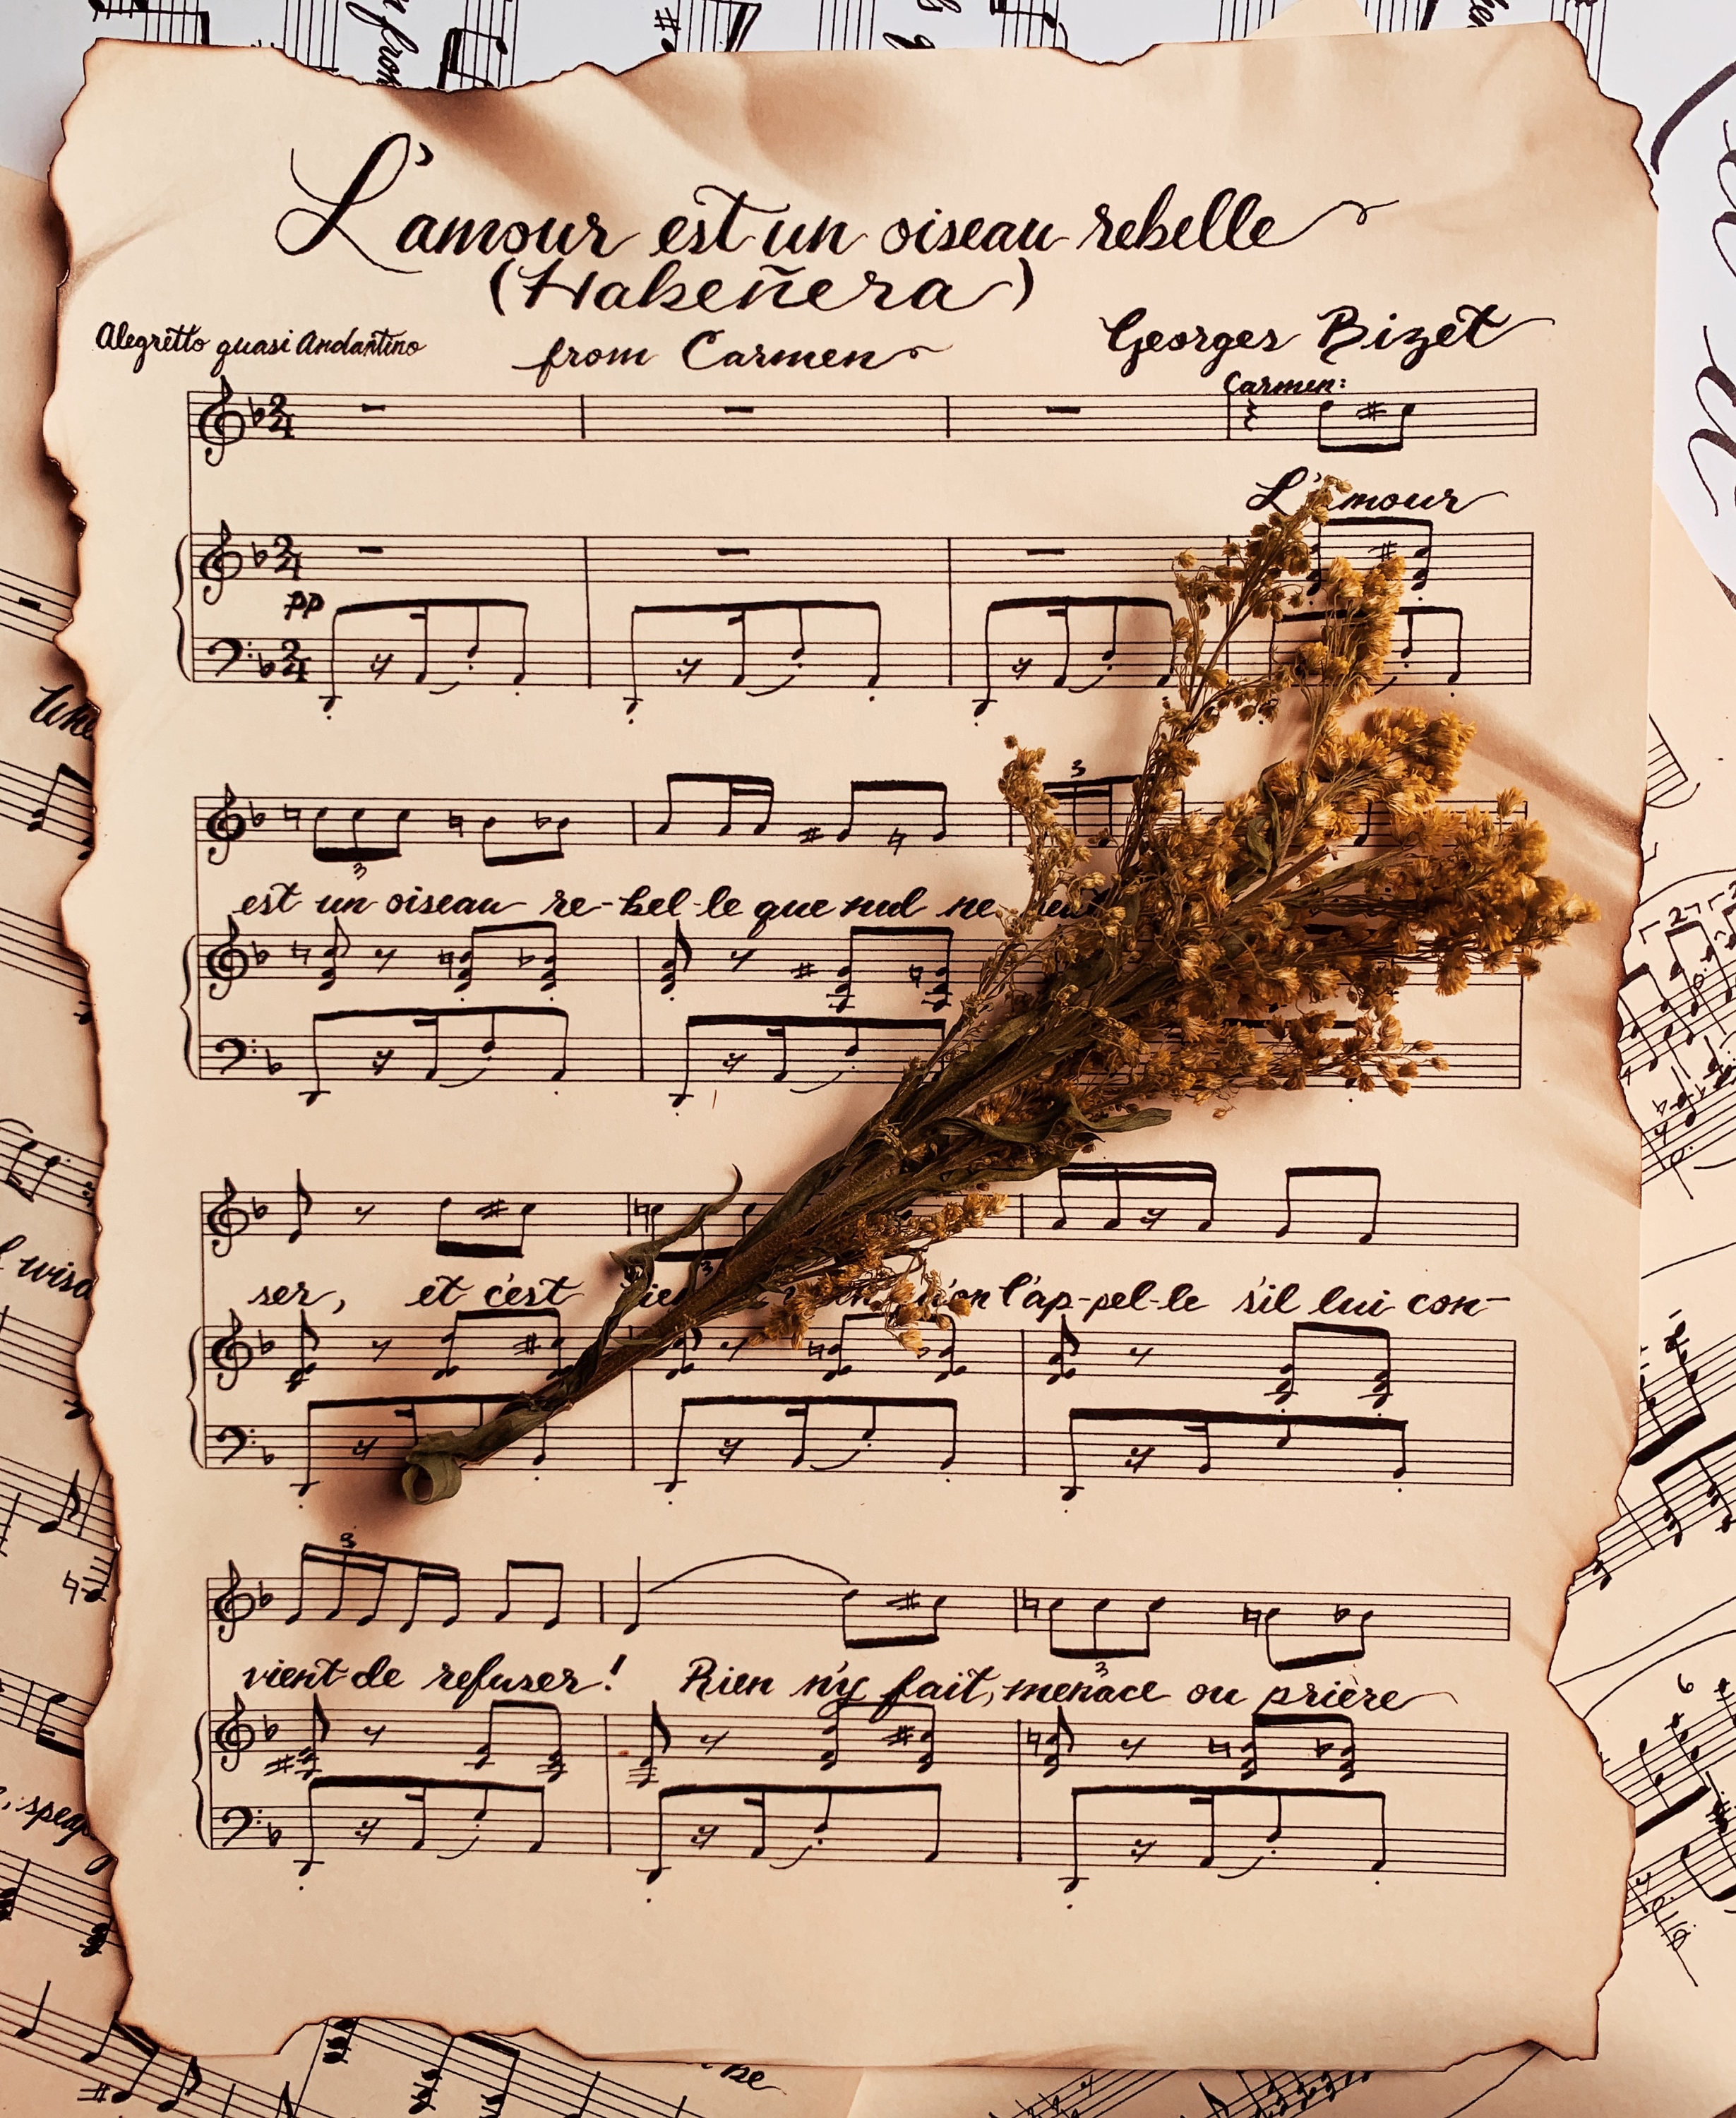 L'amour est un oiseau rebelle
(Habeñera)
Alegretto quasi Andantino
from Carmen
Georges Bizet
Carmen:
L'amour
pp
3
3
est un oiseau re-bel-le que nul ne peut
ser, et c'est l'ap-pel-le s'il lui con-
3
3
vient de refuser! Rien n'y fait, menace ou prière
3